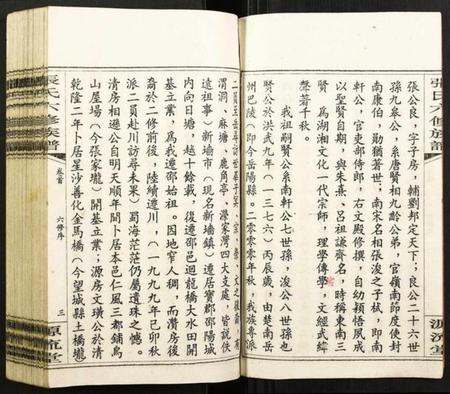 張公良，字子房，輔劉邦定天下；良公二十六世
孫九皋公，系唐賢相九齡公弟，官嶺南節度使封
南康伯，勛猶著世、南宋名相張浚之子栻，即南
軒公，官吏部侍郎，右文殿修撰，自幼穎悟夙成
以聖賢自期，與朱熹、呂祖謙齊名，時稱東南三
賢，為湖湘文化一代宗師，理學傳學，文經武緯
聲蓍千秋。
我祖嗣賢公系南軒公七世孫，浚公八世孫也
賢公於洪武九年（一三七六）丙辰歲，由楚南岳
州巴陵（即今岳陽縣。二零零零年秋，我族尊派
渭洞、麻塘、鹿角亭、漯家灣四大支處，皆說佚
遠祖事）新墻市（現名新墻鎮）遷居寶郡邵陽城
內向日塘，越十餘載，復遷邵邑迴龍橋大水田開
基立業，為我遷邵始祖。因地窄人稠，而瀆房後
裔於二修前後，陸續遷川，（一九九九年己卯秋
派二員赴川訪尋未果）蜀海茫茫仍屬遺珠之憾。
清房相遜公自明天順年間卜居本邑仁風三都鋪鳥
山屋場（今張家壠）開基立業；源房文璜公於清
乾隆二年卜居星沙善化金馬橋（今望城縣土橋壠
張氏六修族譜
卷首
六修序
三
源流堂